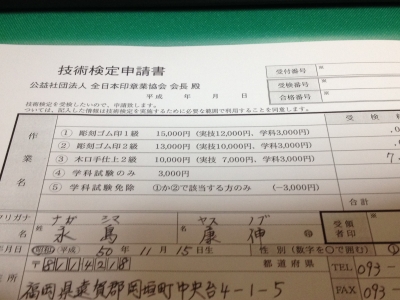 技術検定申請書
公益社団法人 全日本印章業協会 会長 殿
平成 年 月 日
技術検定を受検したいので、申請致します。
ついては、記入した情報は技術検定を実施するために必要な範囲で利用することを同意します。
受付番号 ※
受検番号 ※
合格番号 ※
作業名
受 検 料
① 彫刻ゴム印1級 15,000円 (実技12,000円、学科3,000円)
② 彫刻ゴム印2級 13,000円 (実技10,000円、学科3,000円)
③ 木口手仕上2級 10,000円 (実技 7,000円、学科3,000円)
④ 学科試験のみ 3,000円
⑤ 学科試験免除 ①か②で該当する方のみ (−3,000円)
合計
フリガナ ナガ シマ ヤス ノブ
永島 康伸
受領者印
月日 昭和 平成 50年 11月 15日生 性 別 (数字を○で囲む)
〒 8114218 都道府県
TEL 093-
FAX 093
住所 福岡県遠賀郡岡垣町中央台4-1-5